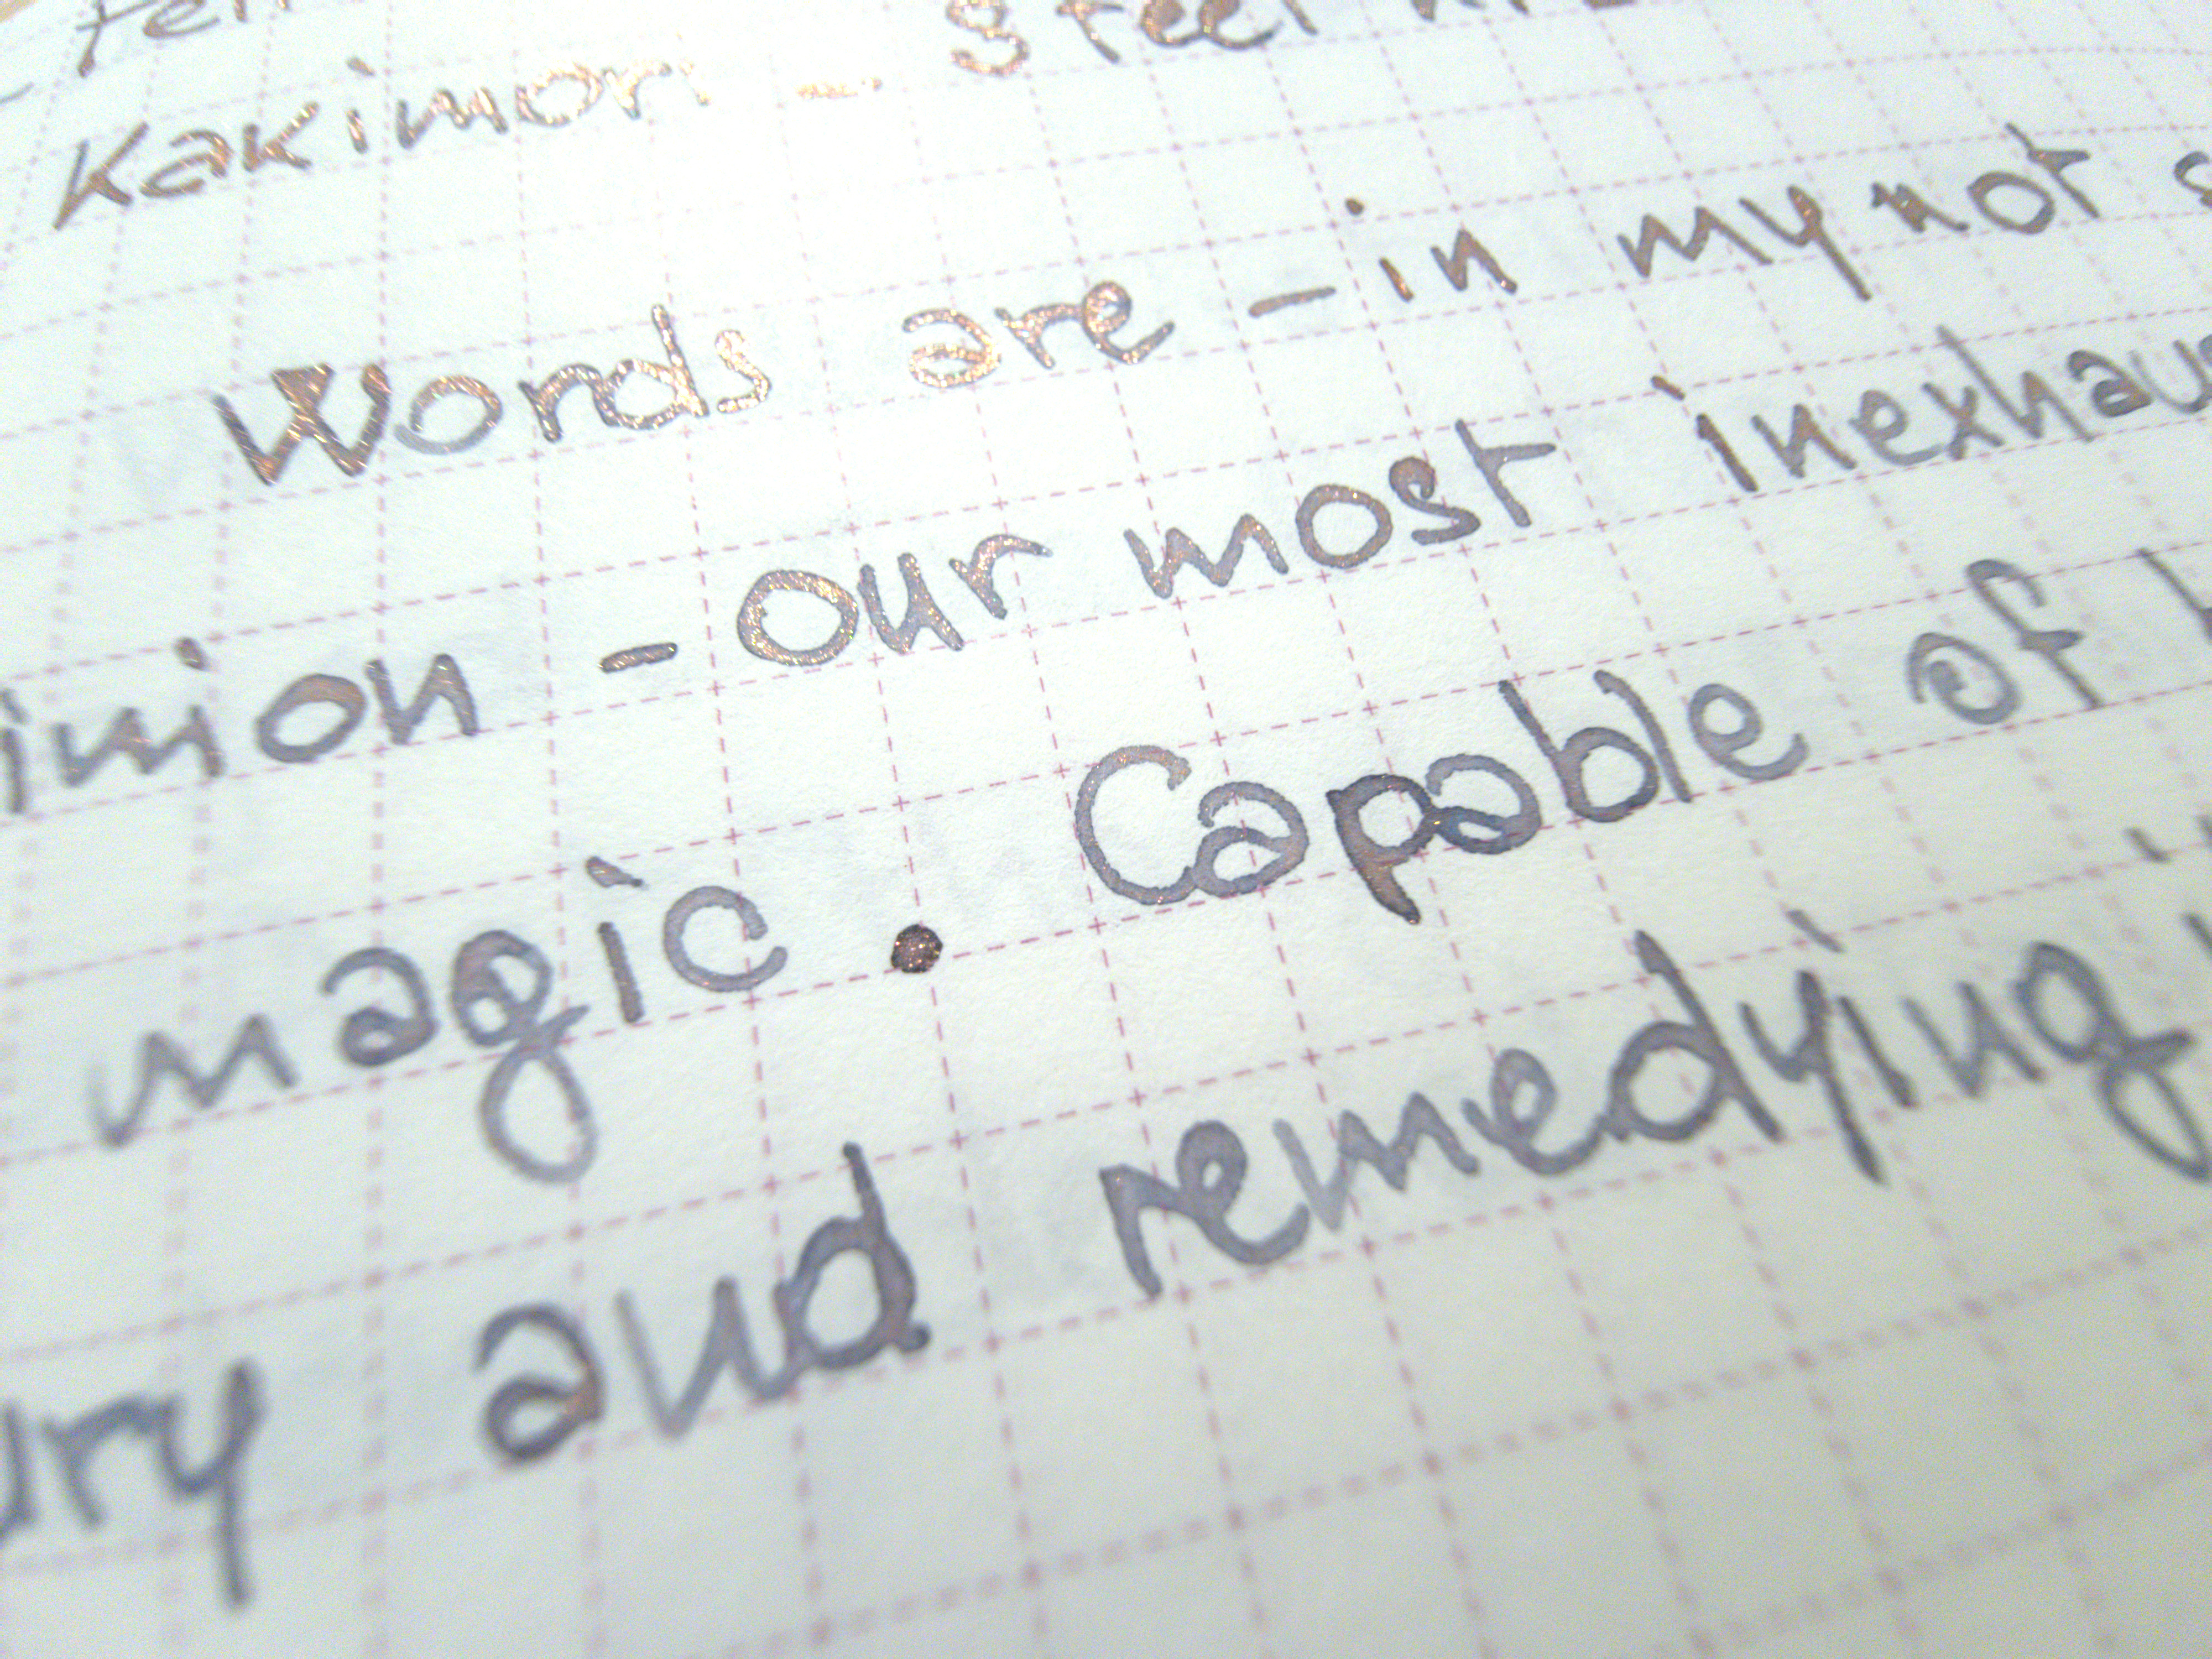 Kakimori - Steel
Words are - in my not
inion - our most inexhaus
magic. Capable of
ury and remedying